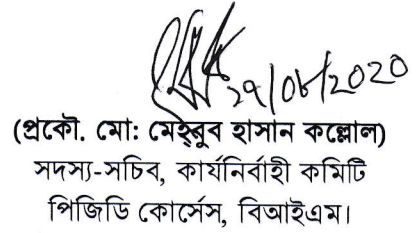 ২৭/০৮/২০২০
(প্রকৌ. মো: মেহবুব হাসান কল্লোল)
সদস্য-সচিব, কার্যনির্বাহী কমিটি
পিজিডি কোর্সেস, বিআইএম।